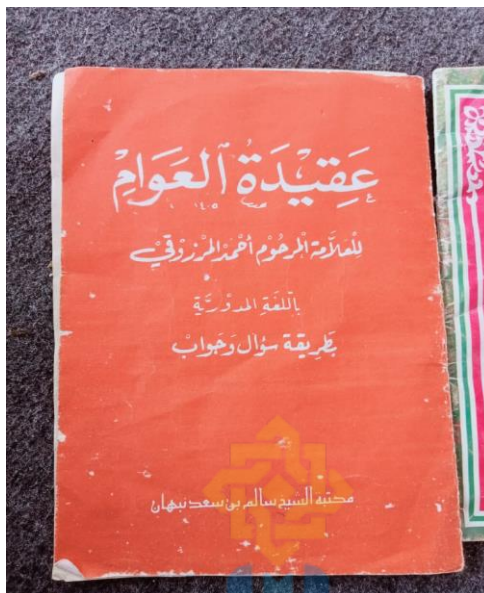 عَقِيْدَةُ الْعَوَامْ
للعَلاَّمة المرحُوم أحْمَدْ المرْزُوقيْ
بِاللُّغَةِ المدوْرِيَّةِ
بَطَرِيقَة سُؤال وَجَوابْ
مكتبه الشيخ سالم بن سعد نبهان